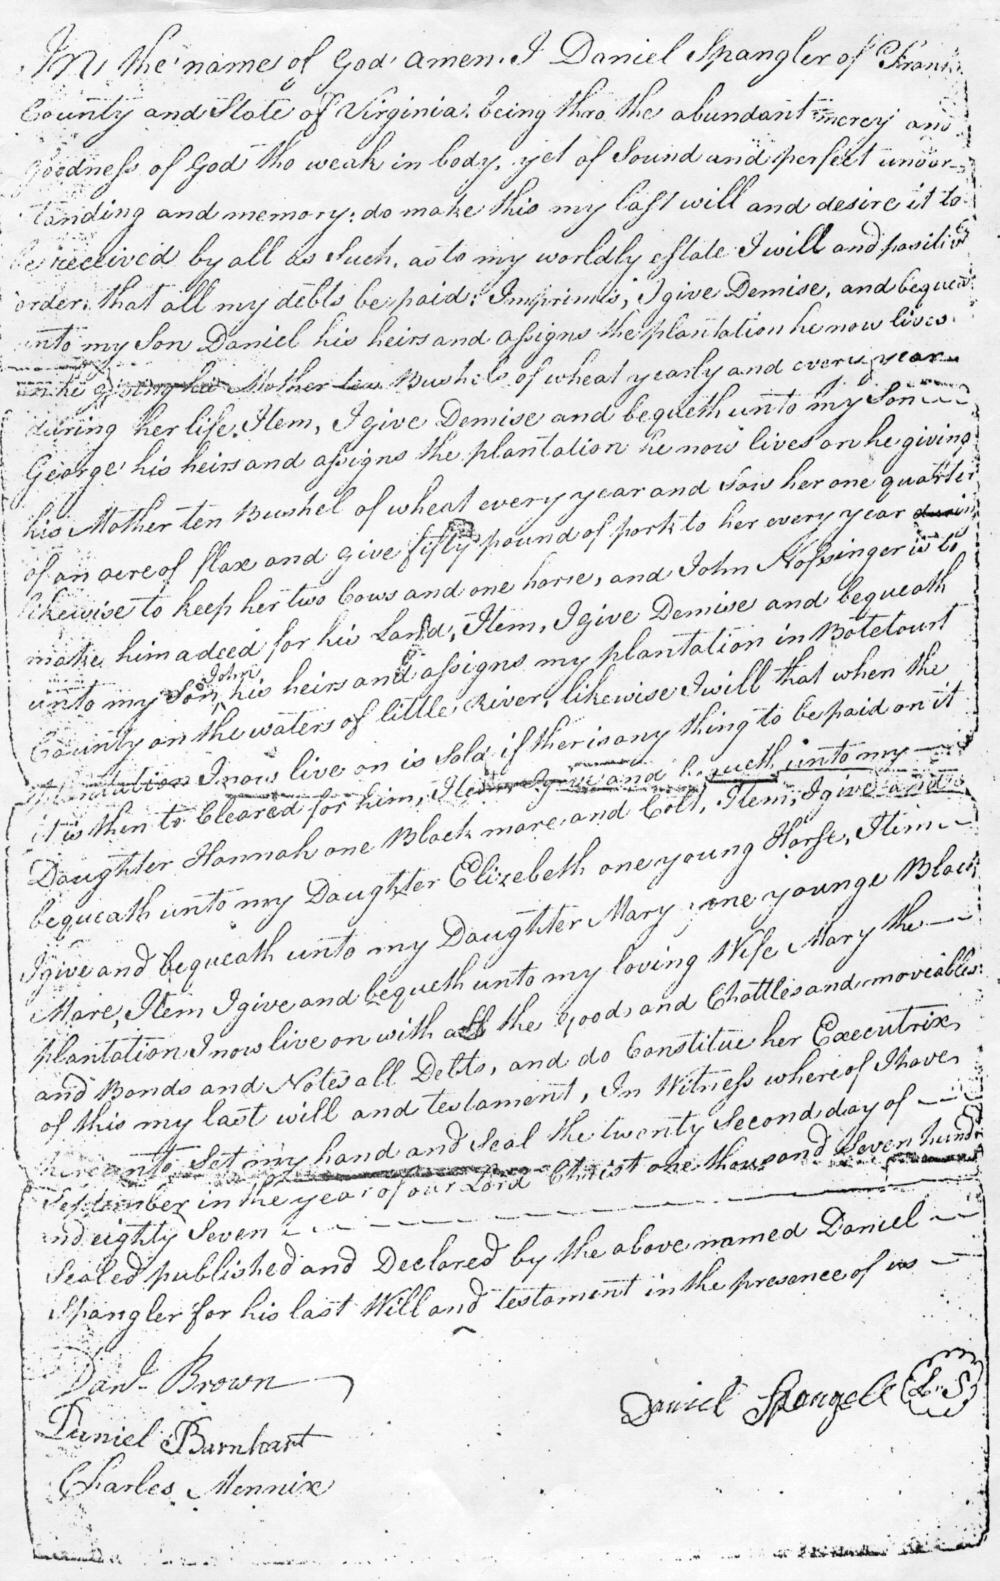 In the name of God amen. I Daniel Spangler of Frank
County and State of Virginia. being thro the abundant mercy and
goodness of God tho weak in body, yet of Sound and perfect under
tanding and memory. do make this my last will and desire it to
be received by all as Such. as to my worldly estate I will and positive
order, that all my debts be paid: Imprimis, I give Demise, and bequea
unto my Son Daniel his heirs and assigns the plantation he now lives
on he giving his Mother ten Bushels of wheat yearly and every year
during her life. Item, I give Demise and bequeth unto my Son
George his heirs and assigns the plantation he now lives on he giving
his Mother ten Bushel of wheat every year and Sow her one quarter
of an acre of flax and give fifty pound of pork to her every year during
likewise to keep her two Cows and one horse, and John Nofsinger is to
make him a deed for his Land, Item, I give Demise and bequeath
unto my Son John his heirs and assigns my plantation in Botetourt
County on the waters of little River, likewise I will that when the
plantation I now live on is Sold if ther is any thing to be paid on it
it is then to Cleared for him, Item I give and bequeth unto my
Daughter Hannah one Black mare and Colt, Item, I give and
bequeath unto my Daughter Elizebeth one young Horse, Item
I give and bequeath unto my Daughter Mary one younge Black
Mare, Item I give and bequeth unto my loving Wife Mary the
plantation I now live on with all the goods and Chattles and moveables
and Bonds and Notes all Debts, and do Constitue her Executrix
of this my last will and testament, In Witness where of I have
hereunto Set my hand and Seal the twenty Second day of
September in the year of our Lord Christ one thousand Seven hundr
and eighty Seven
Sealed published and Declared by the above named Daniel
Spangler for his last Will and testament in the presence of us
Danl. Brown
Daniel Spangele L.S
Daniel Barnhart
Charles Mennix